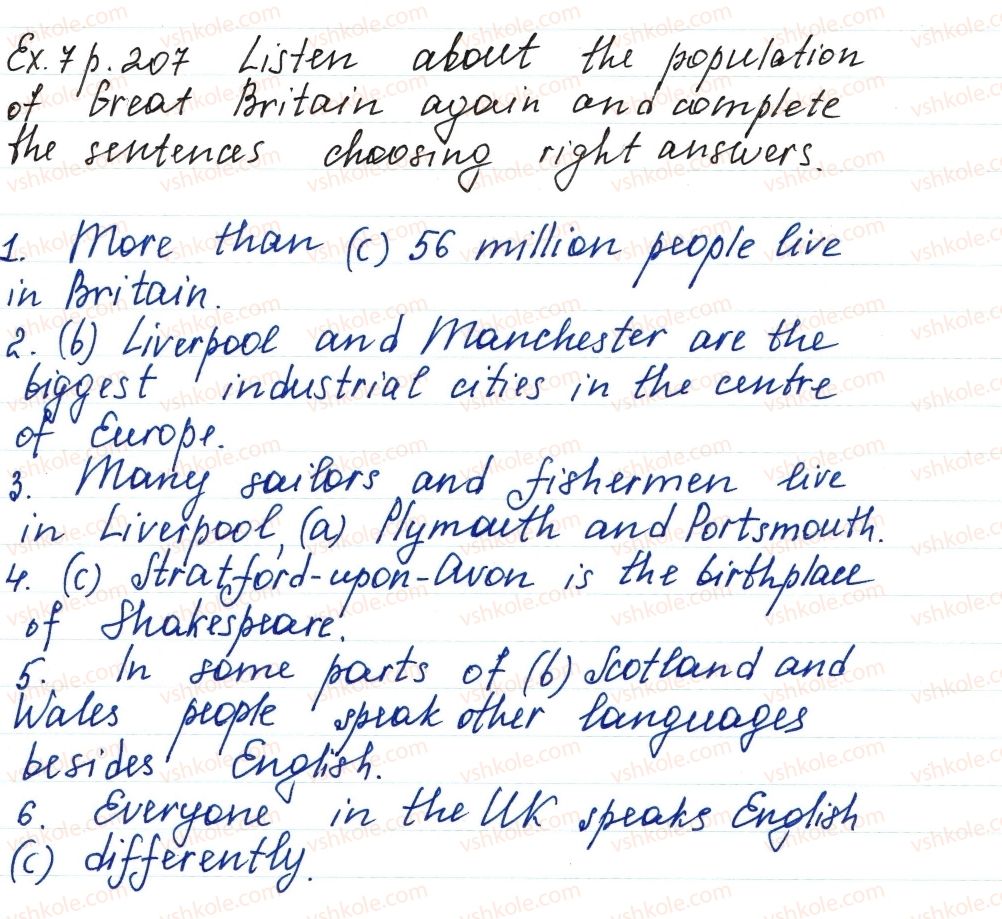 Ex. 7 p. 207 Listen about the population
of Great Britain again and complete
the sentences choosing right answers.
1. More than (c) 56 million people live
in Britain.
2. (b) Liverpool and Manchester are the
biggest industrial cities in the centre
of Europe.
3. Many sailors and fishermen live
in Liverpool, (a) Plymouth and Portsmouth.
4. (c) Stratford-upon-Avon is the birthplace
of Shakespeare.
5. In some parts of (b) Scotland and
Wales people speak other languages
besides English.
6. Everyone in the UK speaks English
(c) differently.
vshkole.com